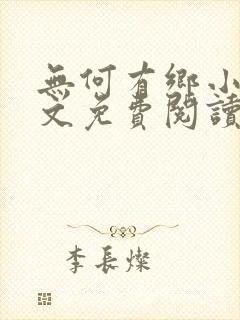 無何有鄉小
文免費閱讀
李長燦